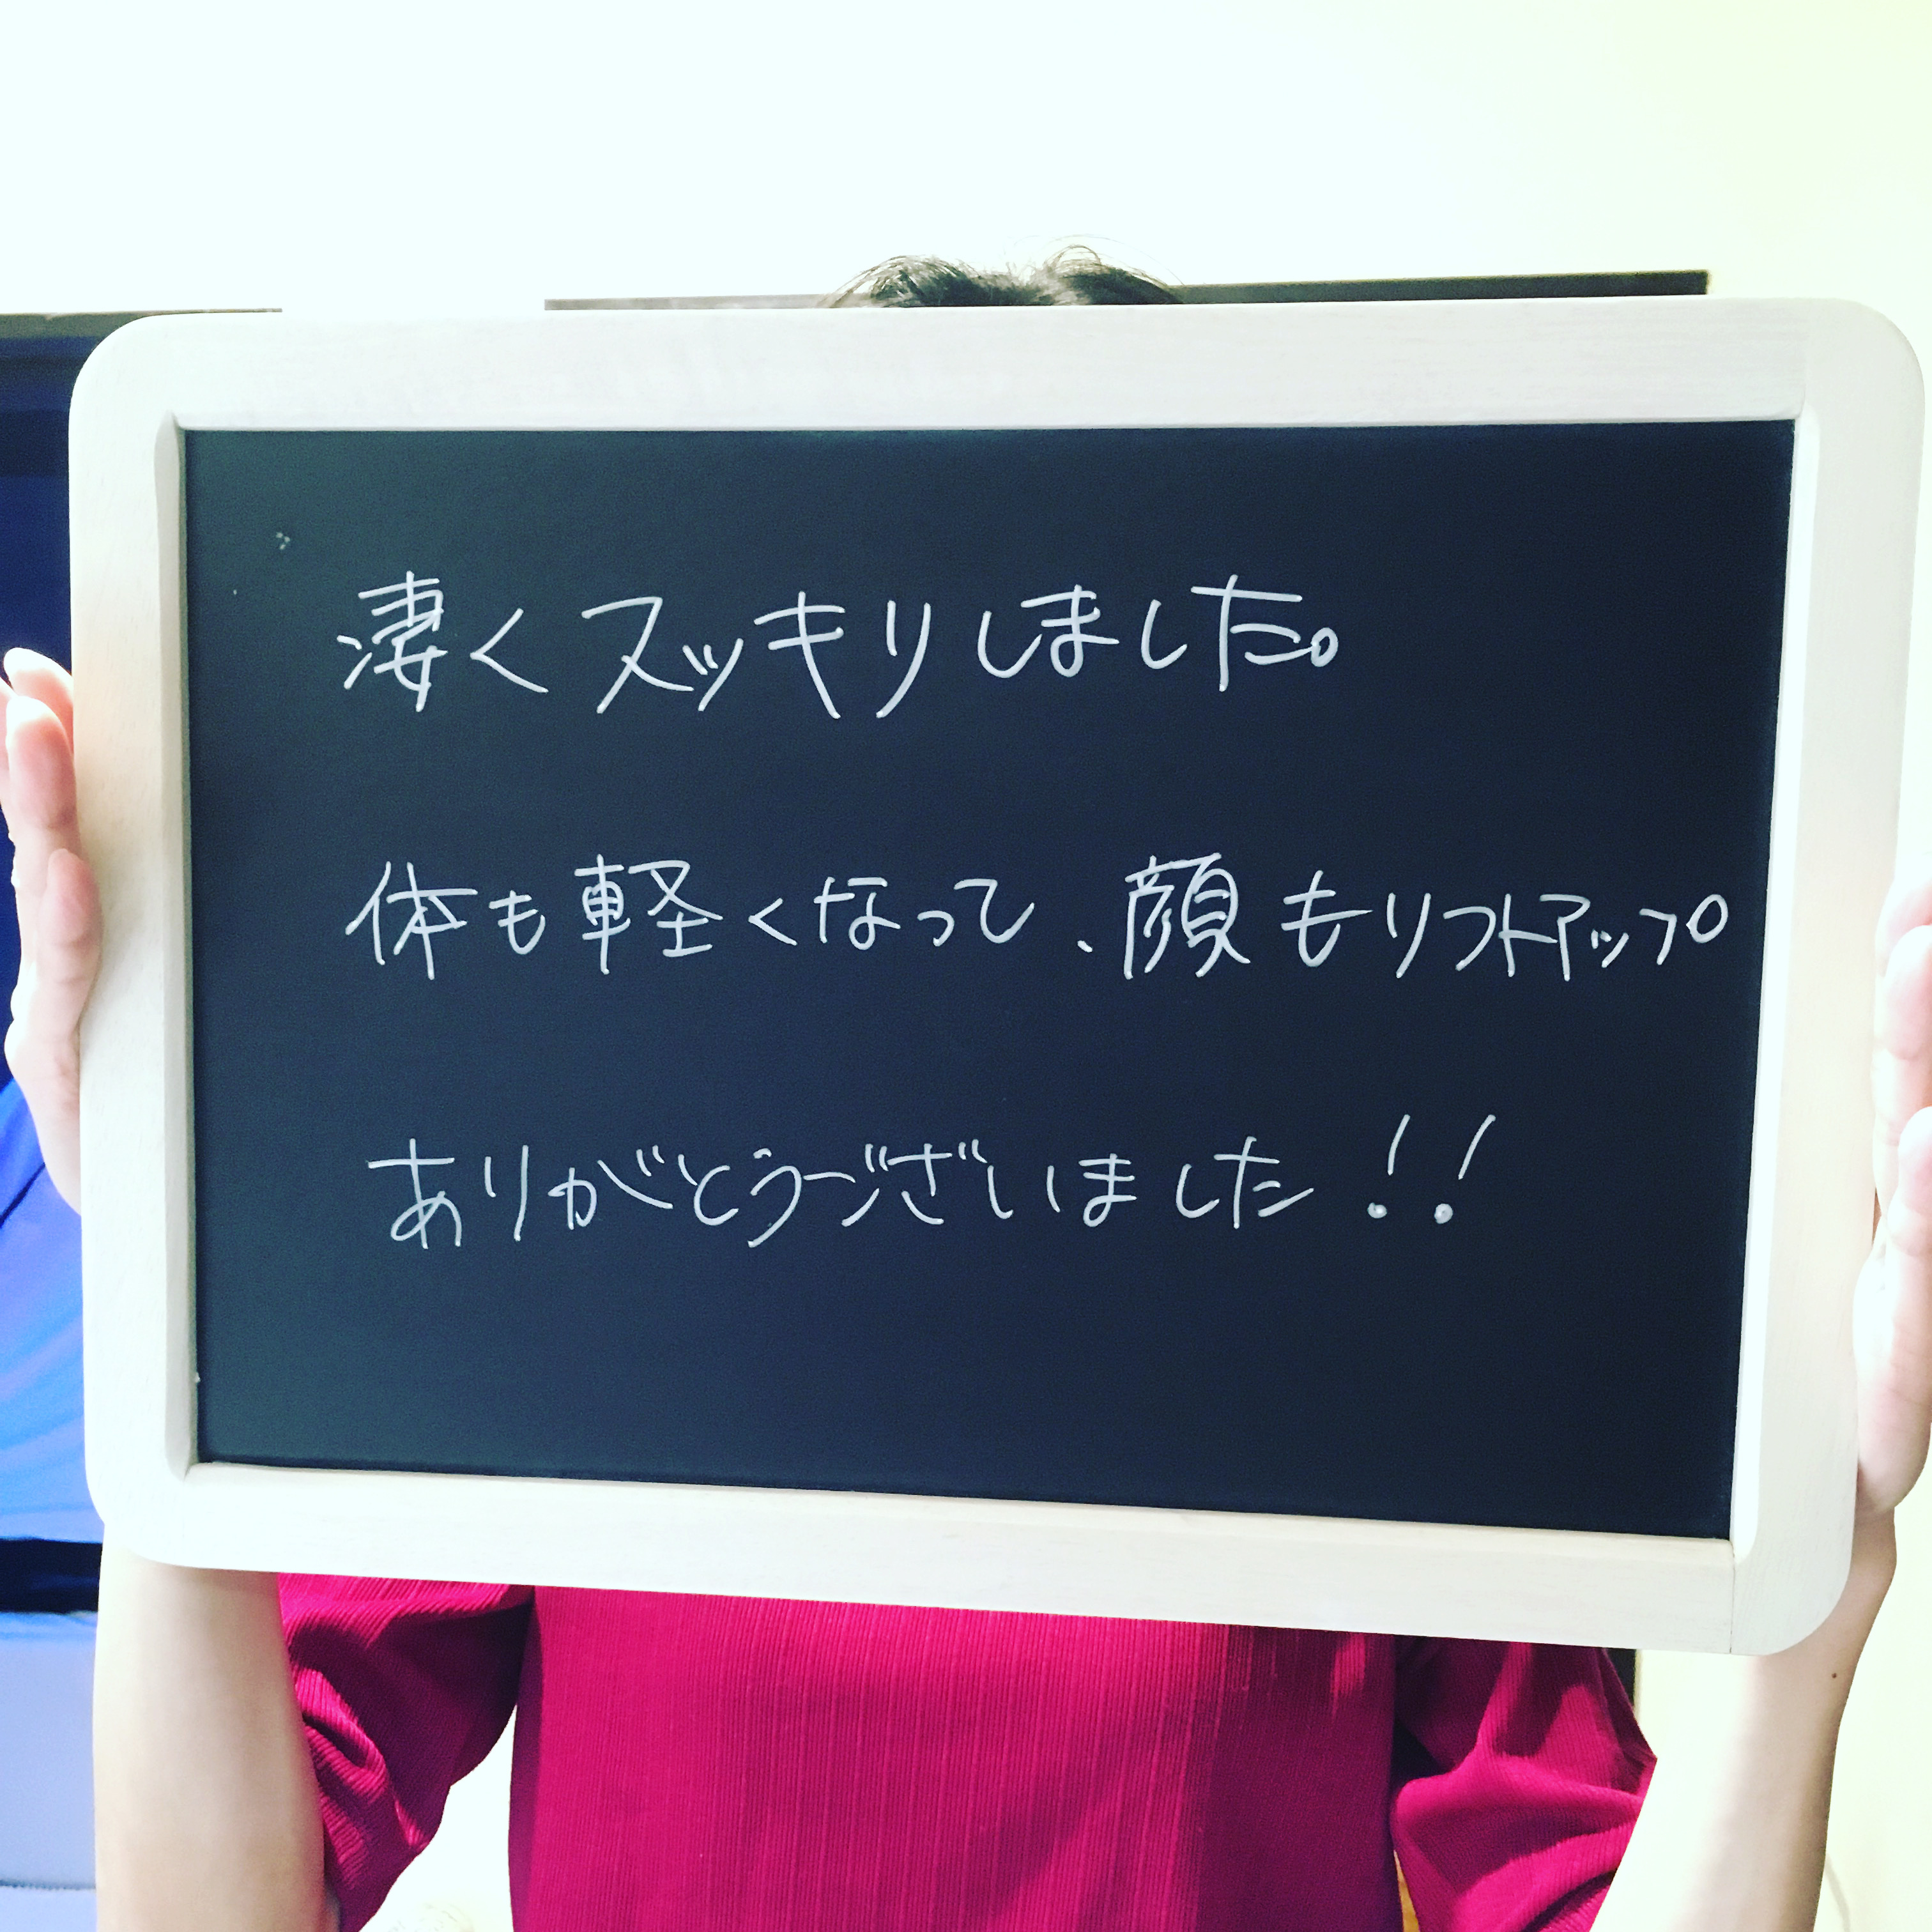 凄くスッキリしました。
体も軽くなって、顔もリフトアップ
ありがとうございました!!